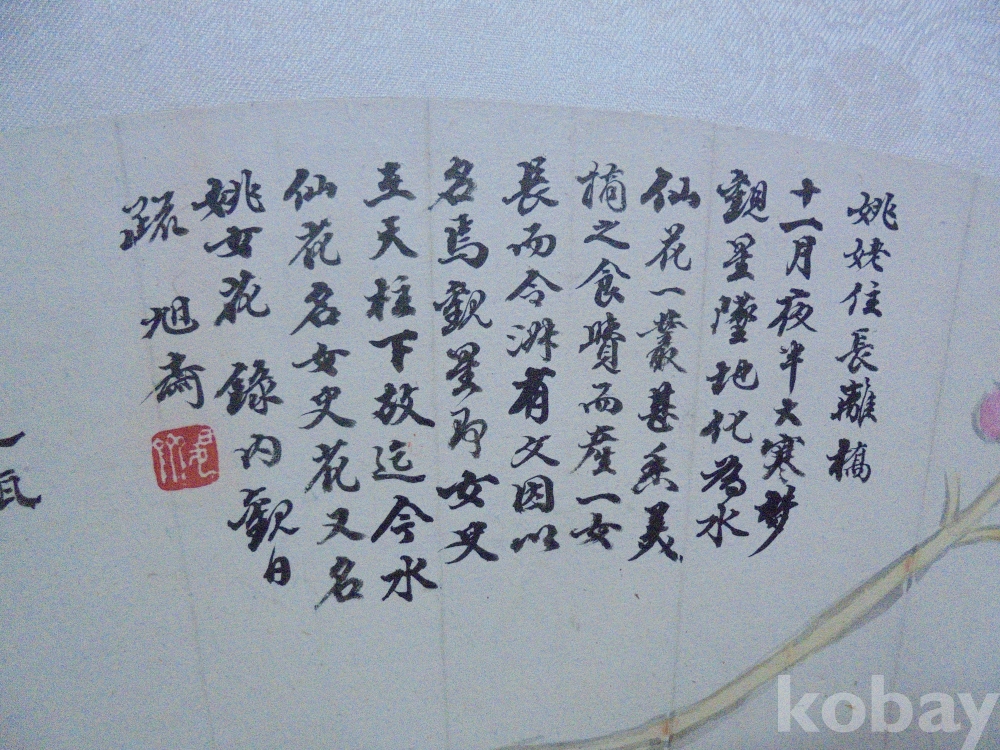 姚姥住長離橋
十一月夜半大寒梦
觀星墜地化為水
仙花一叢甚香美
摘之食覺而產一女
長而令淑有文因以
名焉觀星即女史
在天柱下故迄今水
仙花名女史花又名
姚女花 錄內觀日
疏 旭齋
kobay